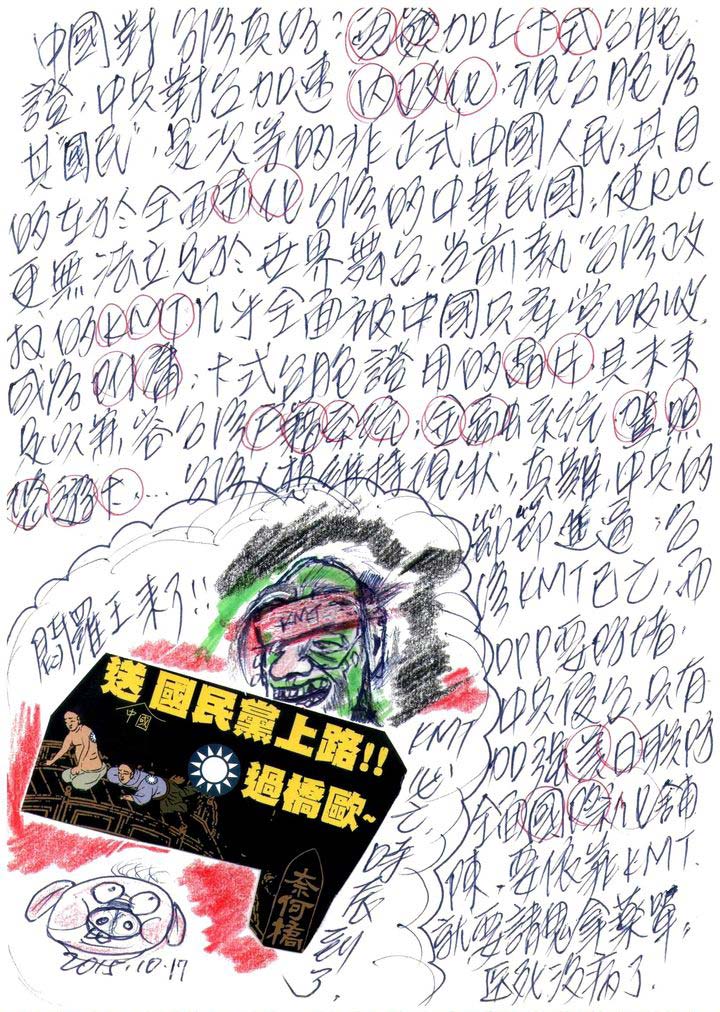 中國對台灣真好"免簽加上卡式台胞
證,中共對台加速"內政化",視台胞為
其"國民",是次等的非正式中國人民,其目
的在於全面去化台灣的中華民國,使ROC
更無法立足於世界舞台,當前執台灣政
權的KMT几乎全面被中國共產党吸收,
成為附庸;卡式台胞證用的晶片,其未來
足以兼容台灣大籍系統;金融系統,健照
悠游卡....台灣人想維持現狀,真難,中共的
節節進逼;台
灣KMT已亡,而
DPP要防堵
中共侵台,只有
加強美日聯防
全面國際化舖
陳,要依靠KMT.
就要請鬼拿藥單,
医死沒病了.
閻羅王來了!!
KMT
送國民黨上路!!
中國
過橋歐~
奈何橋
KMT 死亡時辰到了.
2015.10.17